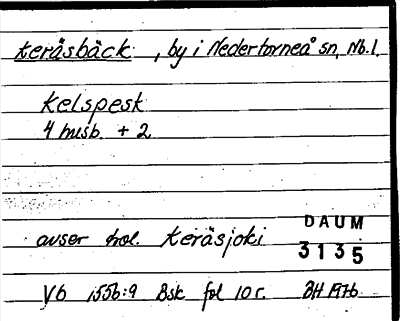 Keräsbäck, by i Nedertorneå sn, Nb.l.
Kelspesk
4 husb. + 2
avser trol. Keräsjoki
DAUM
3135
V6 155b:9 Bsk fol 10r. BH 1976